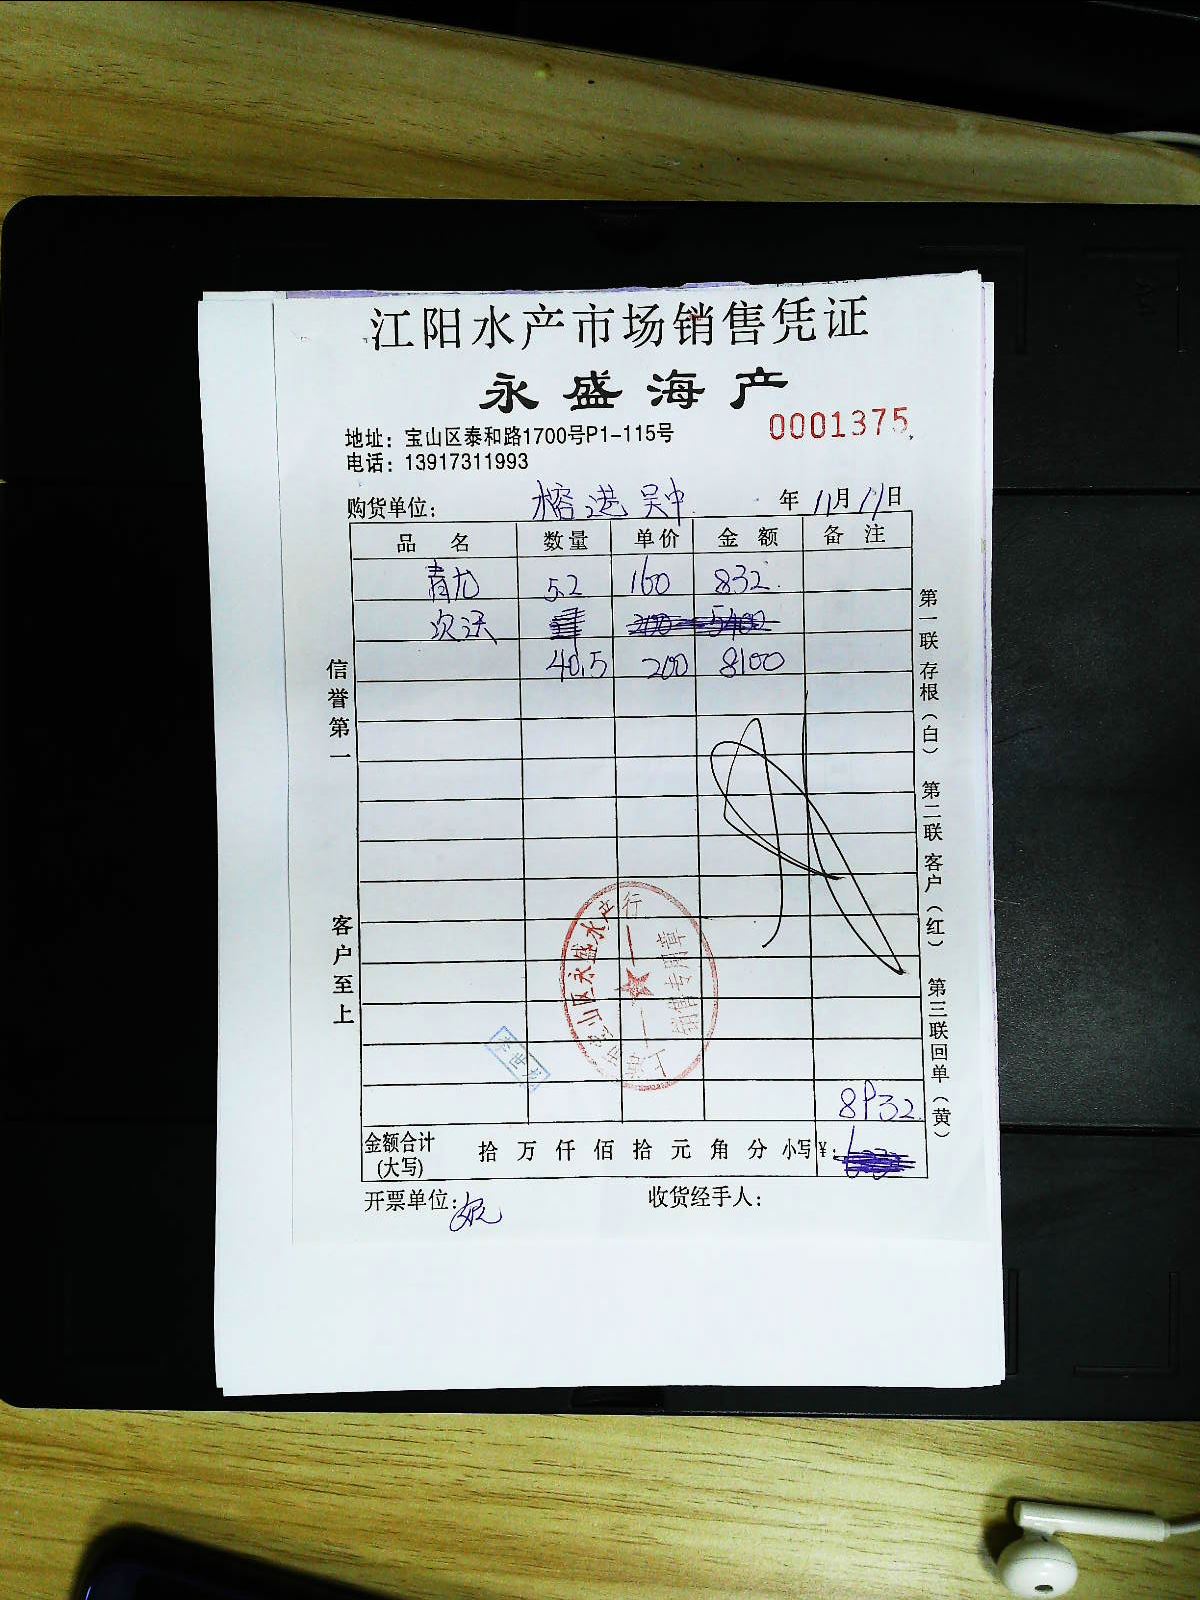 江阳水产市场销售凭证
永盛海产
0001375
地址：宝山区泰和路1700号P1-115号
电话：13917311993
购货单位： 榕港 吴中 年 11月 11日
品名 数量 单价 金额 备注
青龙 5.2 160 832
次沃
40.5 200 8100
信誉第一
客户至上
第一联 存根（白） 第二联 客户（红） 第三联 回单（黄）
上海市宝山区永盛水产行
销售专用章
李世龙
8932
金额合计(大写) 拾 万 仟 佰 拾 元 角 分 小写¥：
开票单位： 收货经手人：